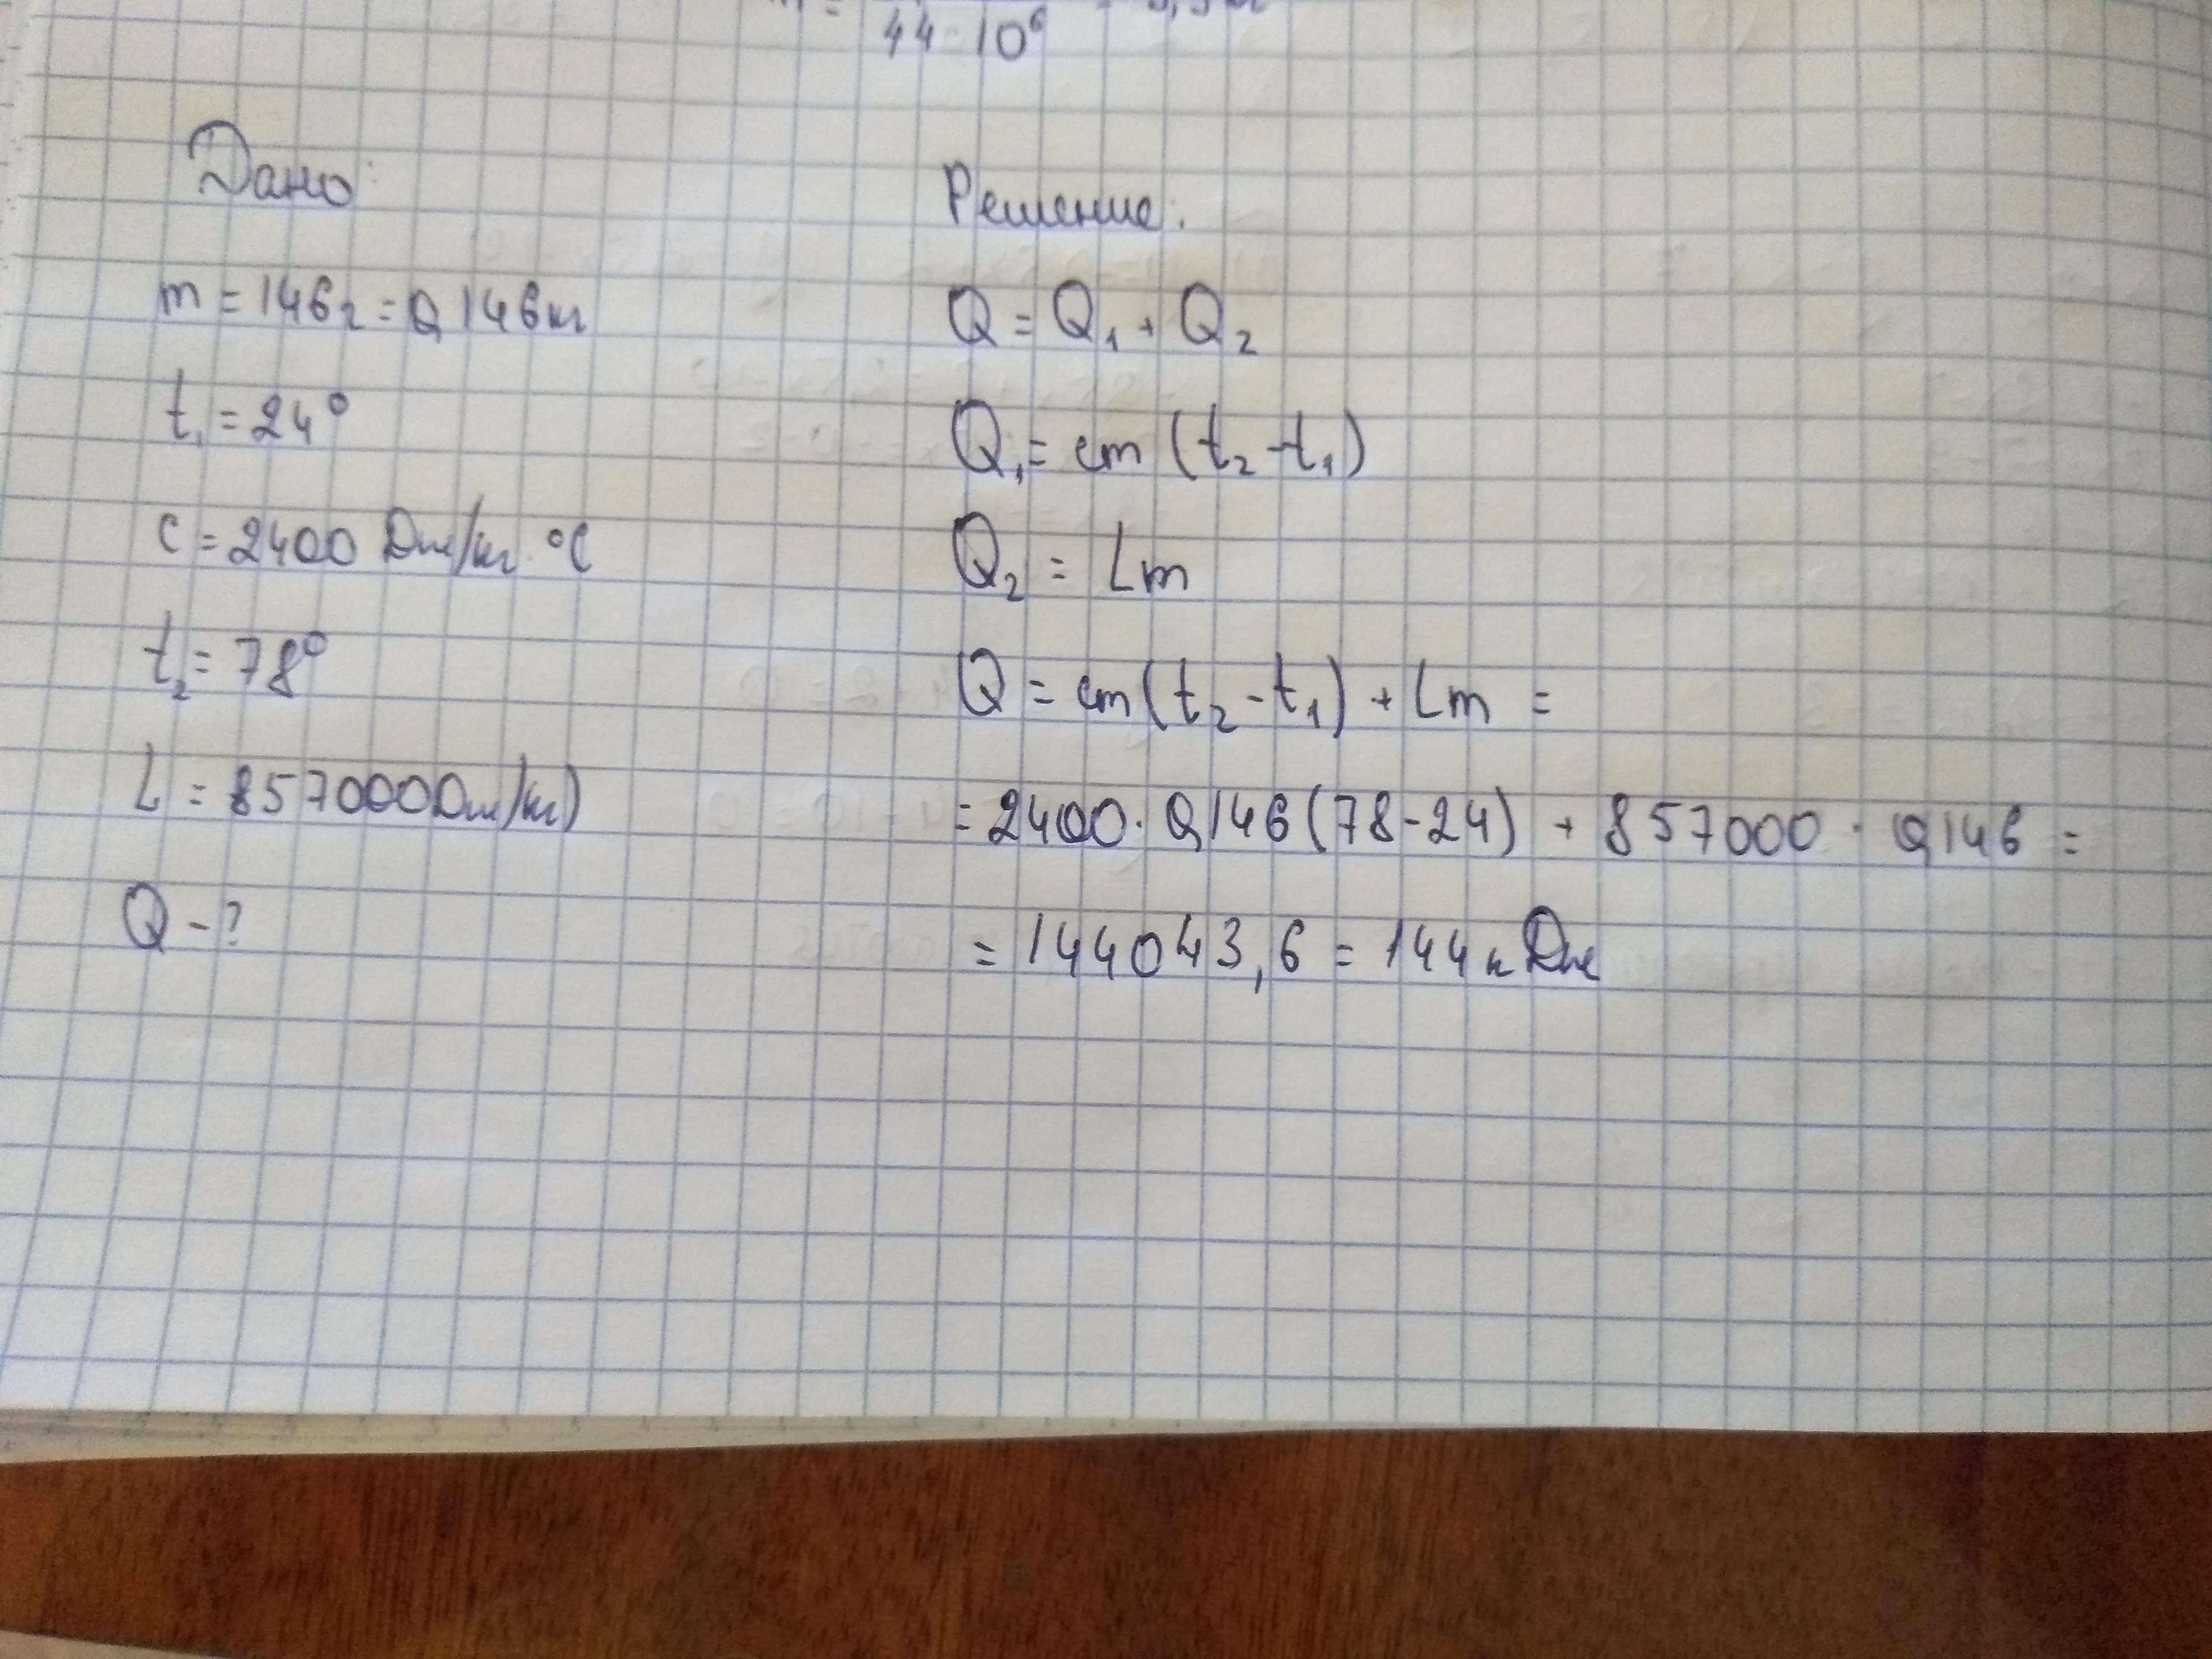 44·10⁶
Дано:
m = 146г = 0,146кг
t₁ = 24°
c = 2400 Дж/кг·°C
t₂ = 78°
L = 857000Дж/кг)
Q - ?
Решение:
Q = Q₁ + Q₂
Q₁ = cm (t₂ - t₁)
Q₂ = Lm
Q = cm(t₂ - t₁) + Lm =
= 2400 · 0,146 (78 - 24) + 857000 · 0,146 =
= 144043,6 = 144 кДж